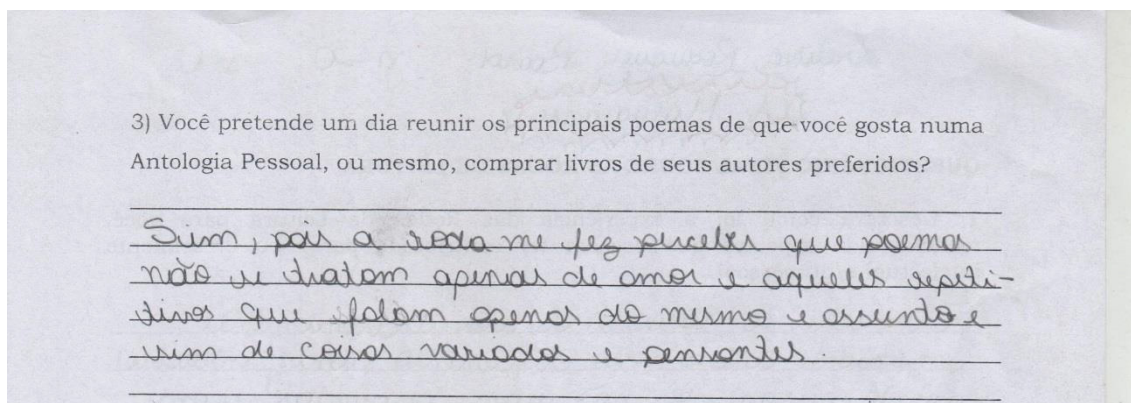 3) Você pretende um dia reunir os principais poemas de que você gosta numa
Antologia Pessoal, ou mesmo, comprar livros de seus autores preferidos?
Sim, pois a roda me fez perceber que poemas
não se tratam apenas de amor e aqueles repeti-
tivos que falam apenas do mesmo e assunto e
sim de coisas variadas e pensantes.